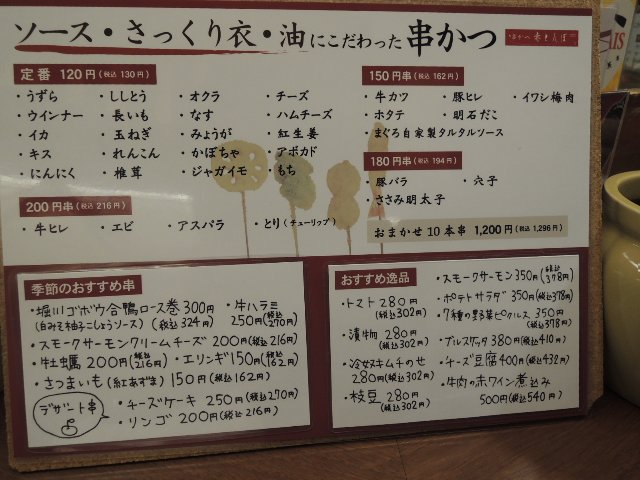 ソース・さっくり衣・油にこだわった 串かつ
定番 120円(税込 130円)
・うずら ・ししとう ・オクラ ・チーズ
・ウインナー ・長いも ・なす ・ハムチーズ
・イカ ・玉ねぎ ・みょうが ・紅生姜
・キス ・れんこん ・かぼちゃ ・アボカド
・にんにく ・椎茸 ・ジャガイモ ・もち
200円串(税込 216円)
・牛ヒレ ・エビ ・アスパラ ・とり(チューリップ)
150円串(税込 162円)
・牛カツ ・豚ヒレ ・イワシ梅肉
・ホタテ ・明石だこ
・まぐろ自家製タルタルソース
180円串(税込 194円)
・豚バラ ・穴子
・ささみ明太子
おまかせ10本串 1,200円(税込 1,296円)
季節のおすすめ串
・堀川ゴボウ合鴨ロース巻 300円
(白みそ柚子こしょうソース)(税込324円)
・牛ハラミ
250円(税込270円)
・スモークサーモンクリームチーズ 200円(税込216円)
・牡蠣 200円(税込216円) ・エリンギ 150円(税込162円)
・さつまいも(紅あずま) 150円(税込162円)
デザート串
・チーズケーキ 250円(税込270円)
・リンゴ 200円(税込216円)
おすすめ逸品
・トマト 280円
(税込302円)
・漬物 280円
(税込302円)
・冷奴キムチのせ
280円(税込302円)
・枝豆 280円
(税込302円)
・スモークサーモン 350円(税込378円)
・ポテトサラダ 350円(税込378円)
・7種の野菜ピクルス 350円
(税込378円)
・ブルスケッタ 380円(税込410円)
・チーズ豆腐 400円(税込432円)
・牛肉の赤ワイン煮込み
500円(税込540円)